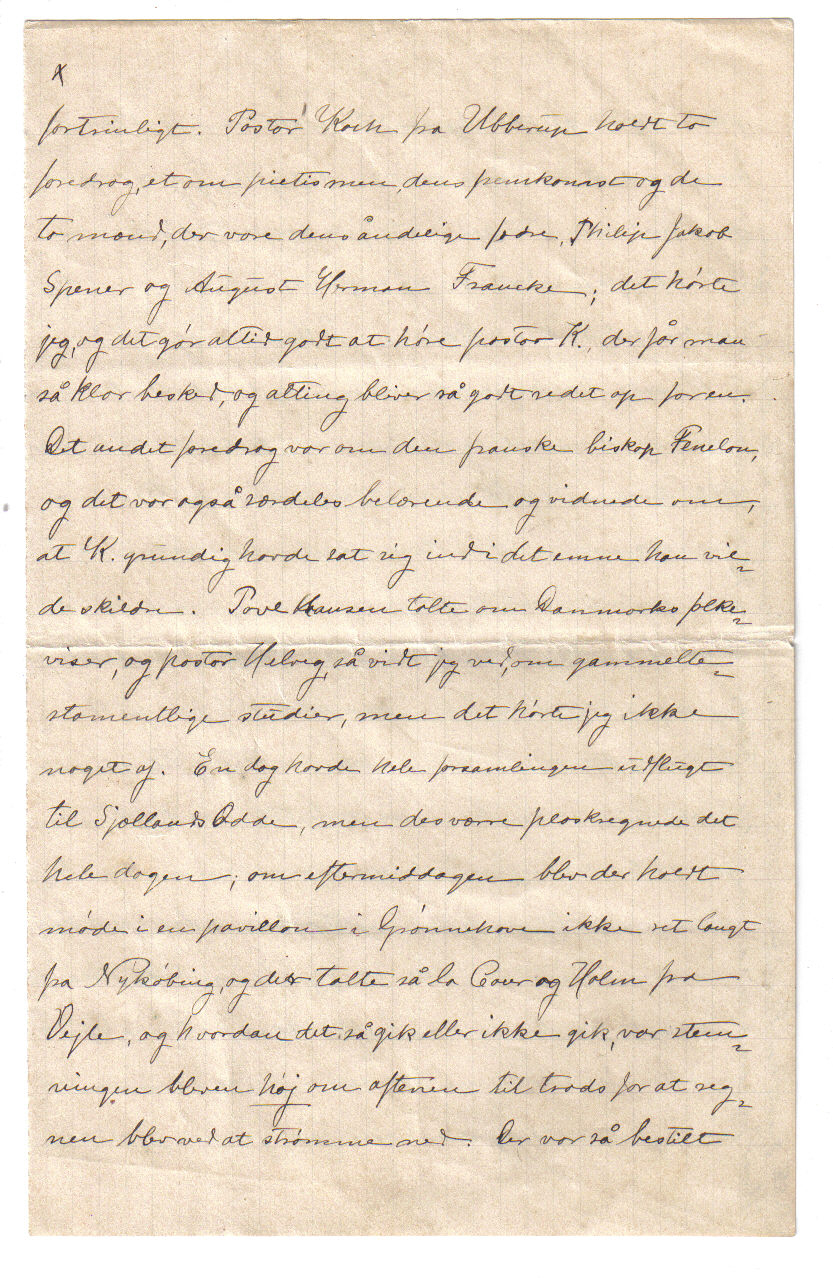 x
fortrinligt. Pastor Koch fra Ubberup holdt to
foredrag, et om pietismen, dens fremkomst og de
to mænd, der vare dens åndelige fædre, Philip Jakob
Spener og August Herman Francke; det hørte
jeg, og det gør altid godt at høre pastor K., der får man
så klar besked, og alting bliver så godt redet op for en.
Det andet foredrag var om den franske biskop Fenelon,
og det var også særdeles belærende og vidnede om,
at K. grundig havde sat sig ind i det emne han vil-
de skildre. Povl Hansen talte om Danmarks folke-
viser, og pastor Helveg, så vidt jeg ved, om gammelte-
stamentlige studier, men det hørte jeg ikke
noget af. En dag havde hele forsamlingen udflugt
til Sjællands Odde, men desværre plaskregnede det
hele dagen; om eftermiddagen blev der holdt
møde i en pavillon i Grønnehave ikke ret langt
fra Nykøbing, og der talte så la Cour og Holm fra
Vejle, og hvordan det så gik eller ikke gik, var stem-
ningen bleven høj om aftenen til trods for at reg-
nen blev ved at strømme ned. Der var så bestilt